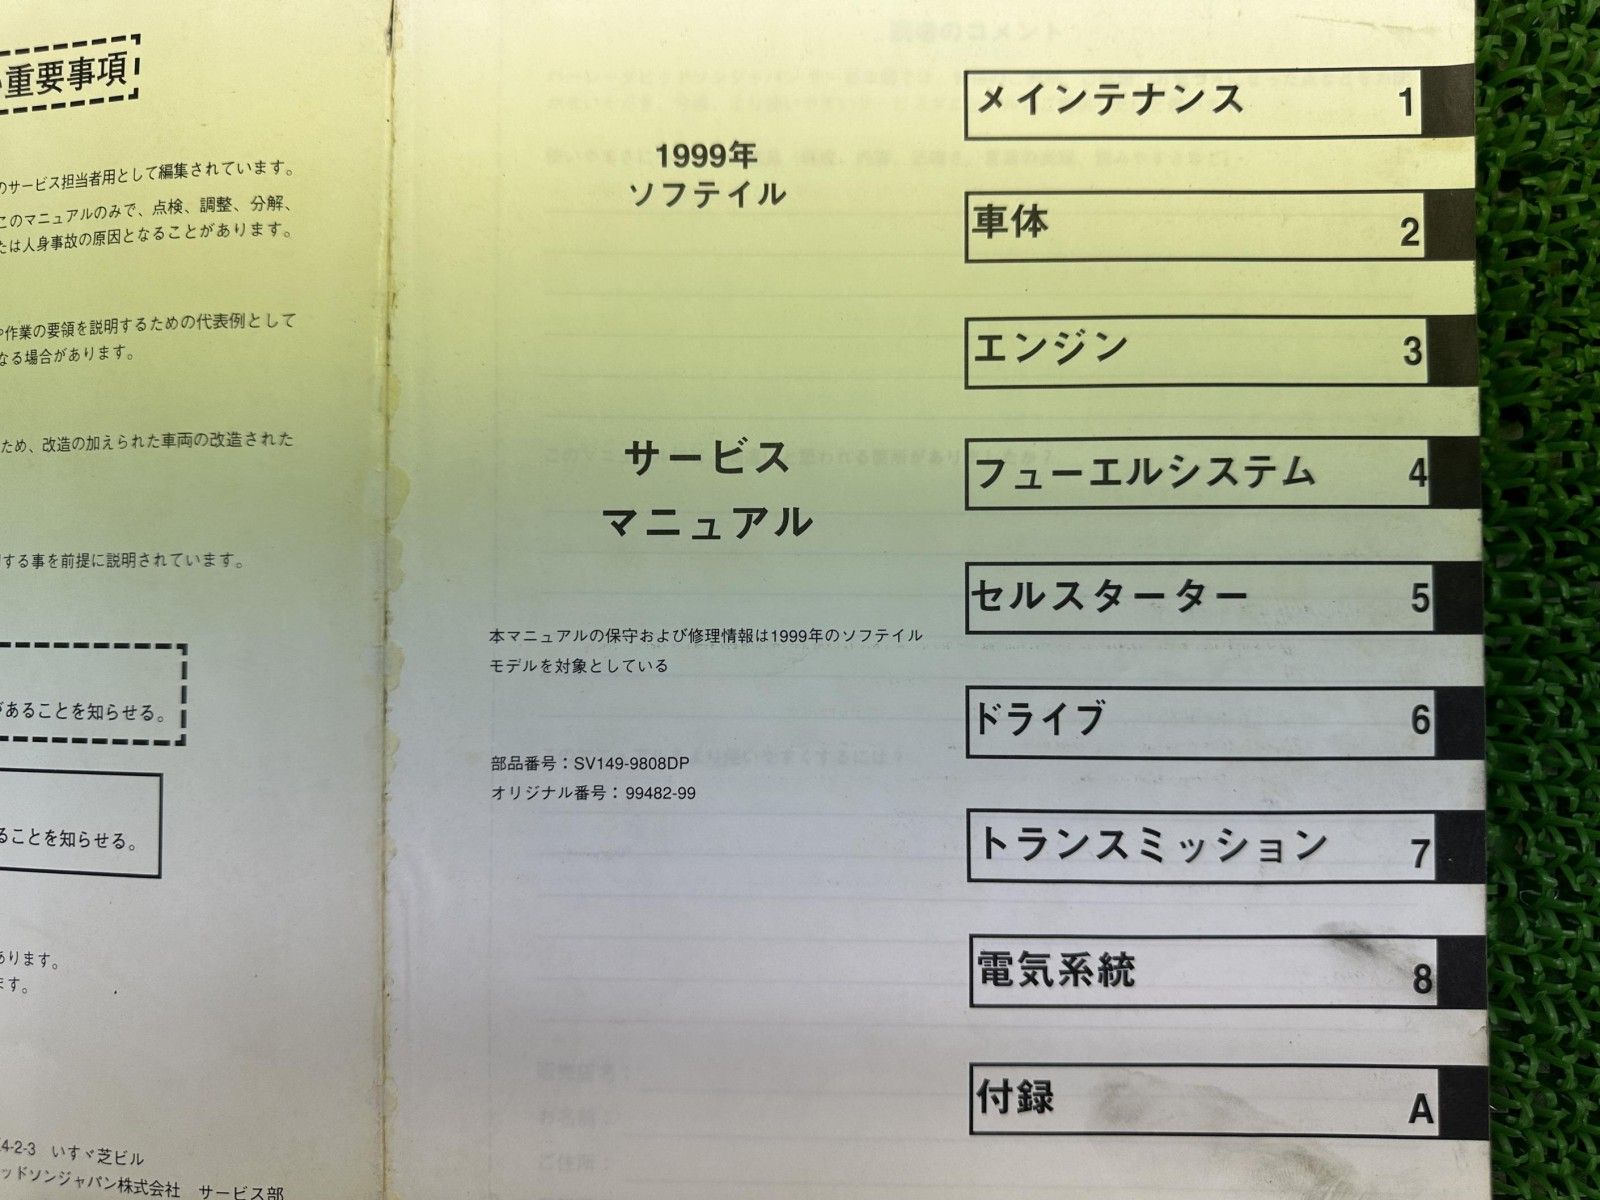 重要事項
のサービス担当者用として編集されています。
このマニュアルのみで、点検、調整、分解、
たは人身事故の原因となることがあります。
や作業の要領を説明するための代表例として
なる場合があります。
ため、改造の加えられた車両の改造された
する事を前提に説明されています。
があることを知らせる。
ることを知らせる。
あります。
ます。
4-2-3 いすゞ芝ビル
ッドソンジャパン株式会社 サービス部
1999年
ソフテイル
サービス
マニュアル
本マニュアルの保守および修理情報は1999年のソフテイル
モデルを対象としている
部品番号：SV149-9808DP
オリジナル番号：99482-99
メインテナンス 1
車体 2
エンジン 3
フューエルシステム 4
セルスターター 5
ドライブ 6
トランスミッション 7
電気系統 8
付録 A